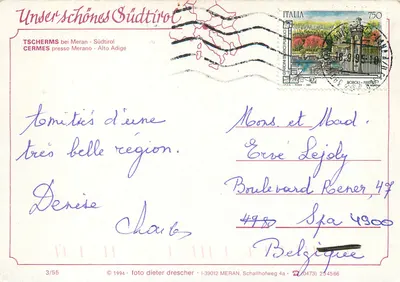 Unser schönes Südtirol
TSCHERMS bei Meran - Südtirol
CERMES presso Merano - Alto Adige
ITALIA 750
Amitiés d'une
très belle région.
Denise
Charles
Mons et Mad.
Ervé Lejoly
Boulevard Rener, 47
4900 Spa 4900
Belgique
2/55
© 1994 - foto dieter drescher - I-39012 MERAN, Schafferhofweg 4a - ☎ (0473)